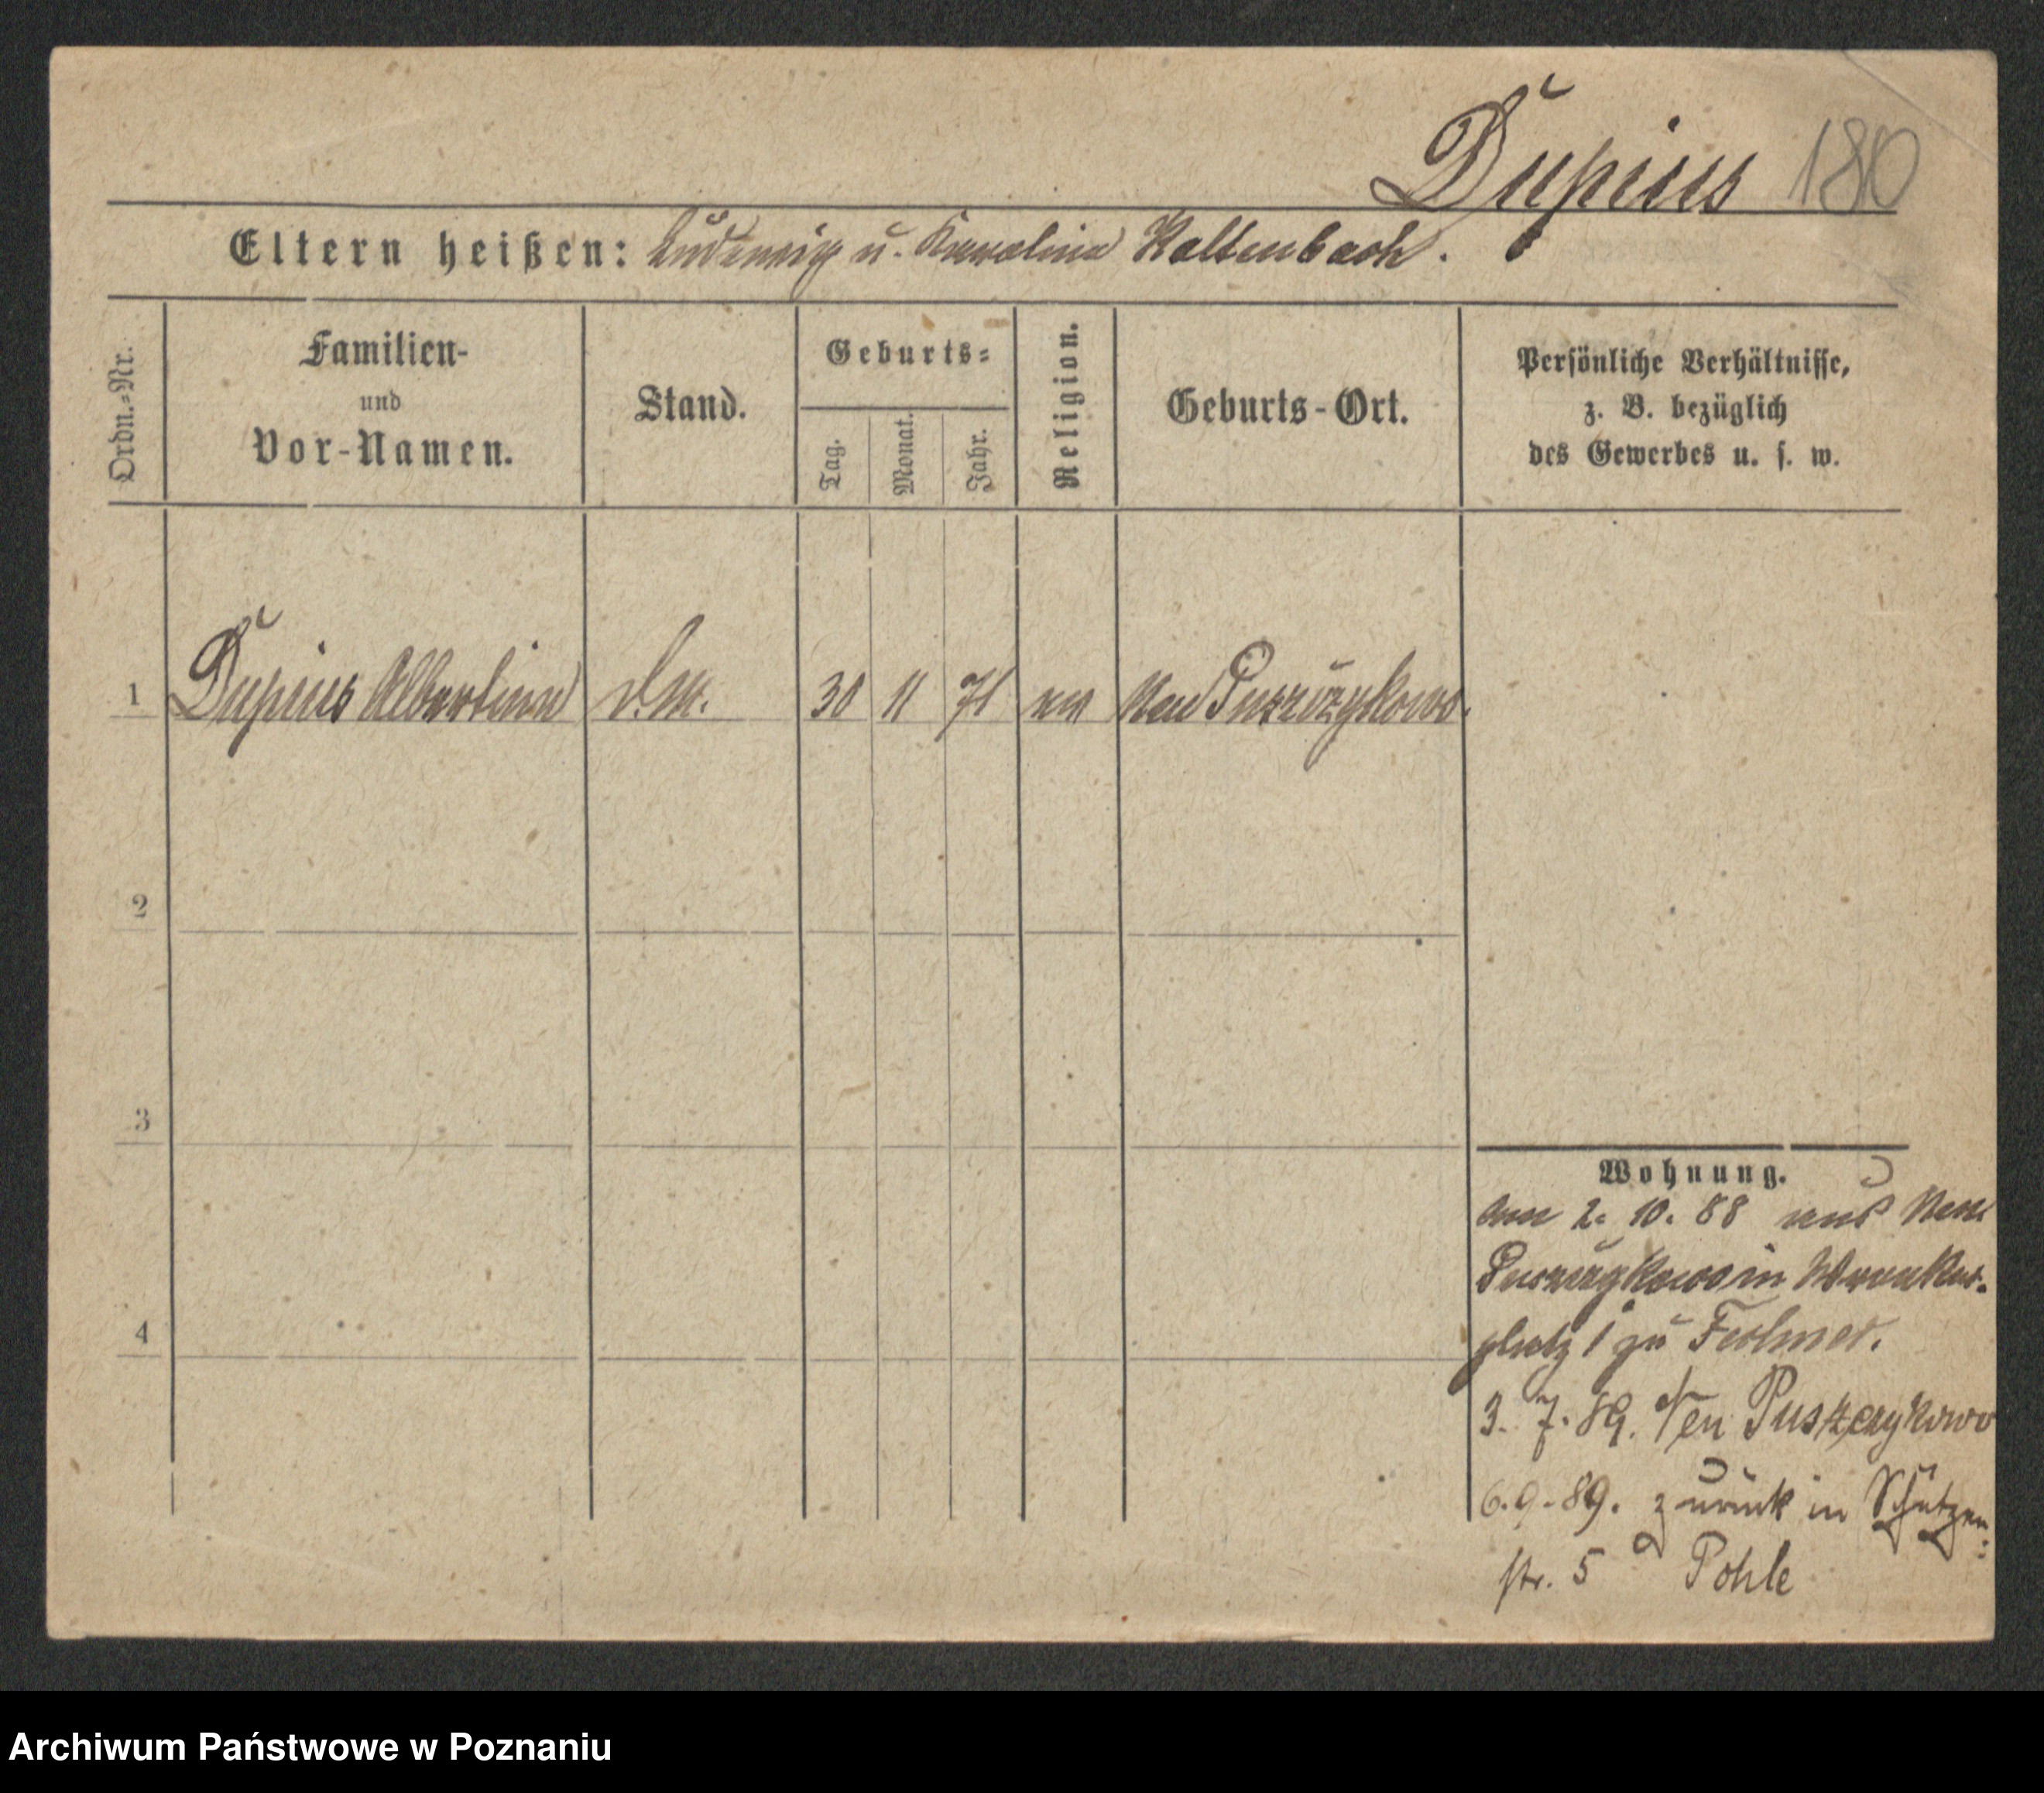 Dupius 180
Eltern heißen: Ludwig u. Karolina Kaltenbach.
Ordn.-Nr.
Familien-
und
Vor-Namen.
Stand.
Geburts-
Tag.
Monat.
Jahr.
Religion.
Geburts-Ort.
Persönliche Verhältnisse,
z. B. bezüglich
des Gewerbes u. s. w.
1 Dupius Albertine d.m. 30 11 71 ev Neu Puszczykowo.
2
3
4
Wohnung.
am 2. 10. 88 aus Neu
Puszczykowo in Wronker-
platz 1 zu
3. 7. 89. Puszczykowo
6.9.89. zurück in Schützen-
str. 5 Pohle
Archiwum Państwowe w Poznaniu